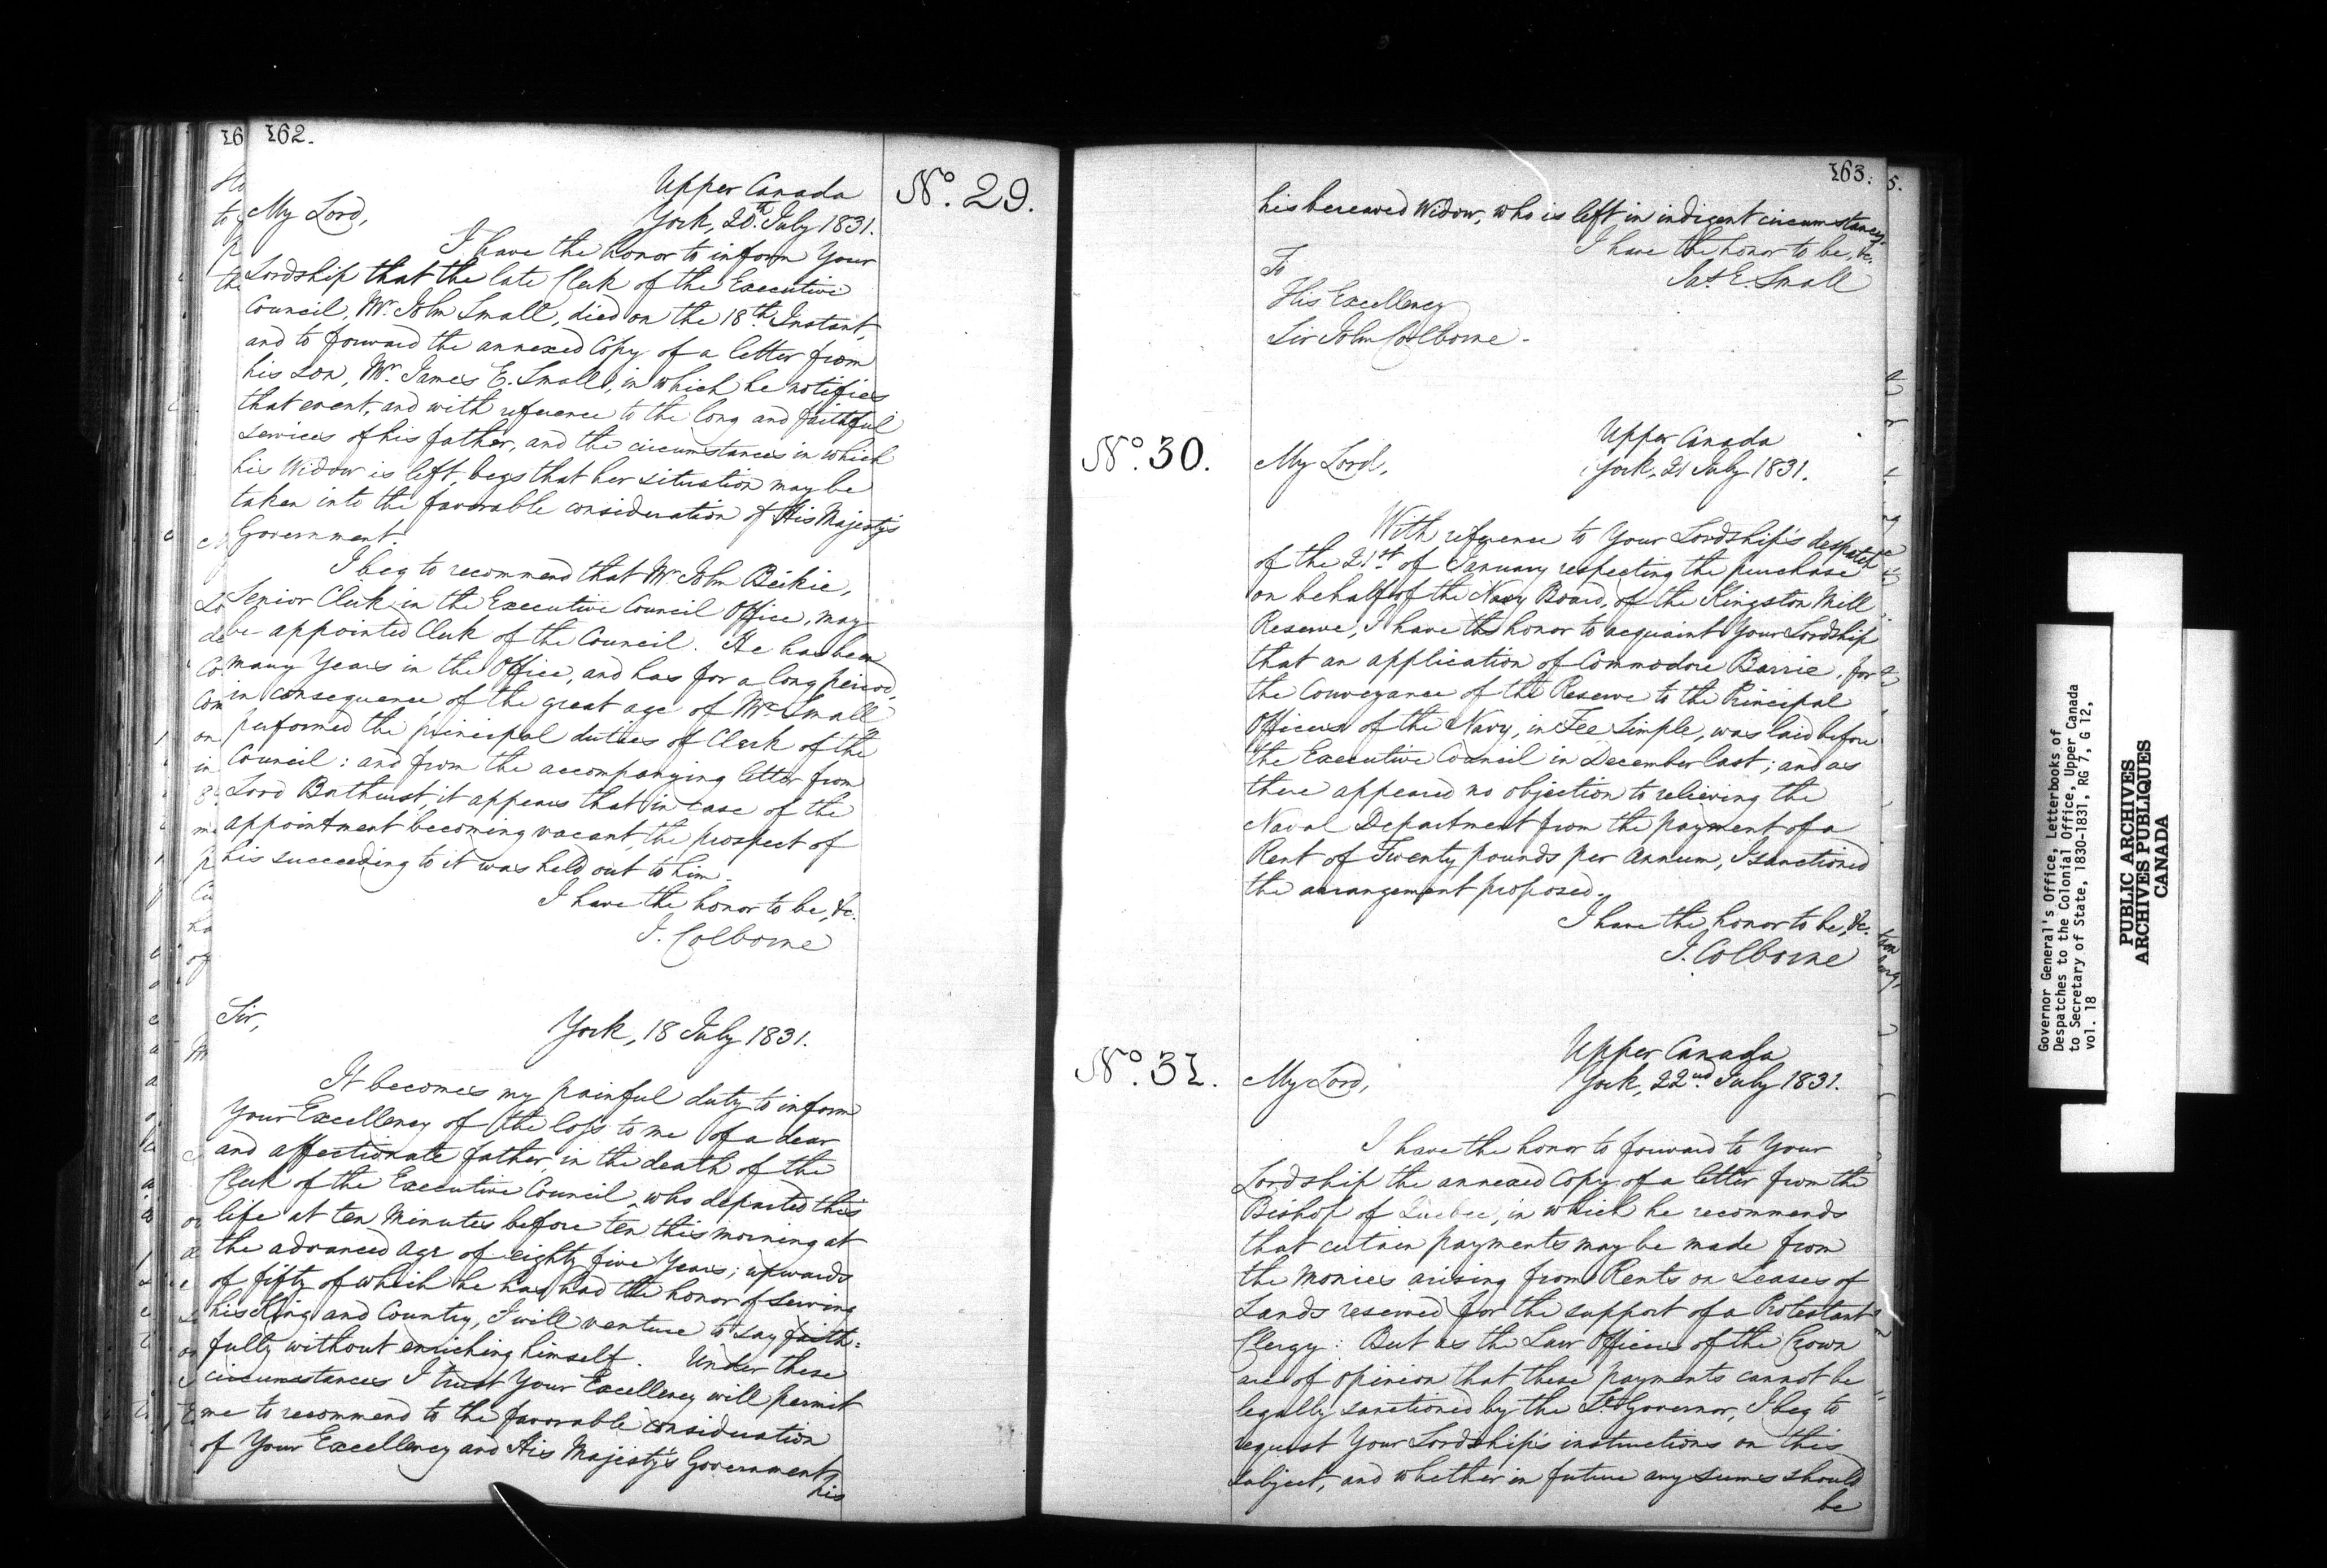 162.
No. 29.
Upper Canada
York, 20th July 1831.
My Lord,
I have the honor to inform Your
Lordship that the late Clerk of the Executive
Council, Mr. John Small, died on the 18th Instant,
and to forward the annexed Copy of a letter from
his Son, Mr. James E. Small, in which he notifies
that event, and with reference to the long and faithful
services of his father, and the circumstances in which
his Widow is left, begs that her situation may be
taken into the favorable consideration of His Majesty's
Government.
I beg to recommend that Mr John Beikie,
Senior Clerk in the Executive Council Office, may
be appointed Clerk of the Council. He has been
many Years in the Office, and has for a long period,
in consequence of the great age of Mr. Small
performed the principal duties of Clerk of the
Council: and from the accompanying letter from
Lord Bathurst, it appears that in case of the
appointment becoming vacant, the prospect of
his succeeding to it was held out to him.
I have the honor to be, &c.
J. Colborne
Sir,
York, 18 July 1831.
It becomes my painful duty to inform
Your Excellency of the loss to me of a dear
and affectionate father, in the death of the
Clerk of the Executive Council, who departed this
life at ten Minutes before ten this morning at
the advanced age of eighty five Years; upwards
of fifty of which he has had the honor of serving
his King and Country, I will venture to say faith=
fully without enriching himself. Under these
circumstances I trust Your Excellency will permit
me to recommend to the favorable consideration
of Your Excellency and His Majesty's Government,
his
163.
his bereaved Widow, who is left in indigent circumstances.
I have the honor to be, &c.
Jas. E. Small
To
His Excellency
Sir John Colborne.
No. 30.
Upper Canada
York, 21 July 1831.
My Lord,
With reference to Your Lordship's despatch
of the 21st of January respecting the purchase
on behalf of the Navy Board, of the Kingston Mill
Reserve, I have the honor to acquaint Your Lordship
that an application of Commodore Barrie, for
the Conveyance of the Reserve to the Principal
Officers of the Navy, in Fee Simple, was laid before
the Executive Council in December last; and as
there appeared no objection to relieving the
Naval Department from the payment of a
Rent of Twenty pounds per Annum, I sanctioned
the arrangement proposed.
I have the honor to be, &c.
J. Colborne
No. 31.
Upper Canada
York, 22nd July 1831.
My Lord,
I have the honor to forward to Your
Lordship the annexed Copy of a letter from the
Bishop of Quebec, in which he recommends
that certain payments may be made from
the Monies arising from Rents on Leases of
Lands reserved for the support of a Protestant
Clergy: But as the Law Officers of the Crown
are of opinion that these payments cannot be
legally sanctioned by the Lt. Governor, I beg to
request Your Lordship's instructions on this
subject, and whether in future any sums should
be
Governor General's Office, Letterbooks of
Despatches to the Colonial Office, Upper Canada
to Secretary of State, 1830-1831, RG 7, G 12,
vol. 18
PUBLIC ARCHIVES
ARCHIVES PUBLIQUES
CANADA